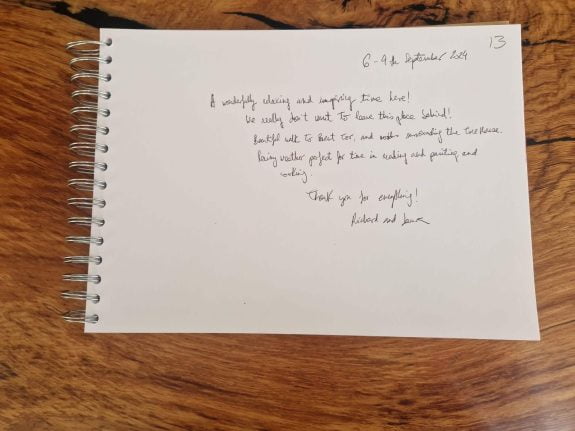 13
6 - 9th September 2024
A wonderfully relaxing and inspiring time here!
We really don't want to leave this place behind!
Beautiful walk to Brent Tor, and surrounding the Tree House.
Rainy weather perfect for time in reading and painting and
cooking.
Thank you for everything!
Richard and